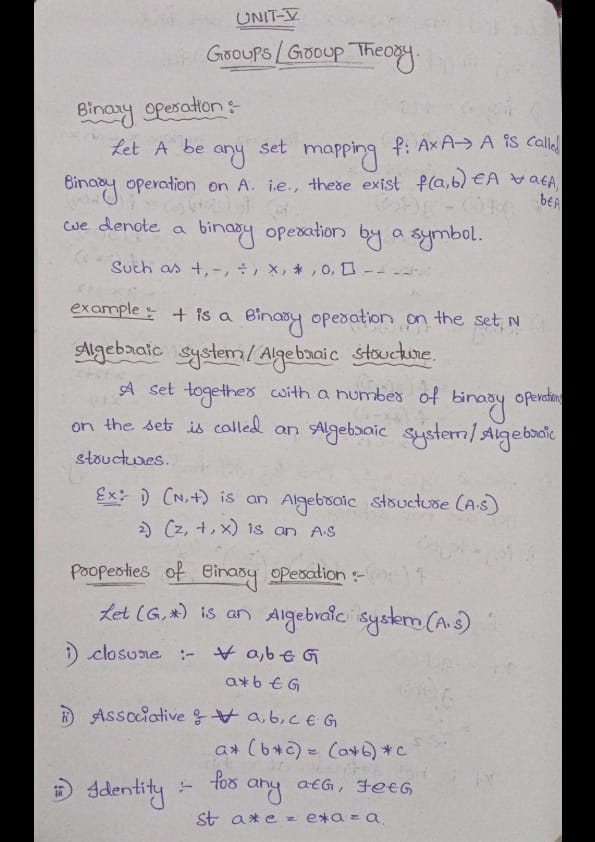 UNIT-V
Groups/Group Theory.
Binary operation :-
Let A be any set mapping f: A×A→ A is called
Binary operation on A. i.e., there exist f(a,b) ∈A ∀ a∈A,
b∈A
we denote a binary operation by a symbol.
Such as +, -, ÷, ×, *, 0, □ -- ----
example :- + is a Binary operation on the set N
Algebraic system/Algebraic structure.
A set together with a number of binary operations
on the sets is called an Algebraic system/Algebraic
structures.
Ex:- 1) (N,+) is an Algebraic structure (A.S)
2) (Z, +, ×) is an A.S
Properties of Binary operation :-
Let (G,*) is an Algebraic system (A.S)
i) closure :- ∀ a,b ∈ G
a*b ∈ G
ii) Associative :- ∀ a,b,c ∈ G
a* (b*c) = (a*b) *c
iii) Identity :- for any a∈G, ∃e∈G
St a*e = e*a = a.